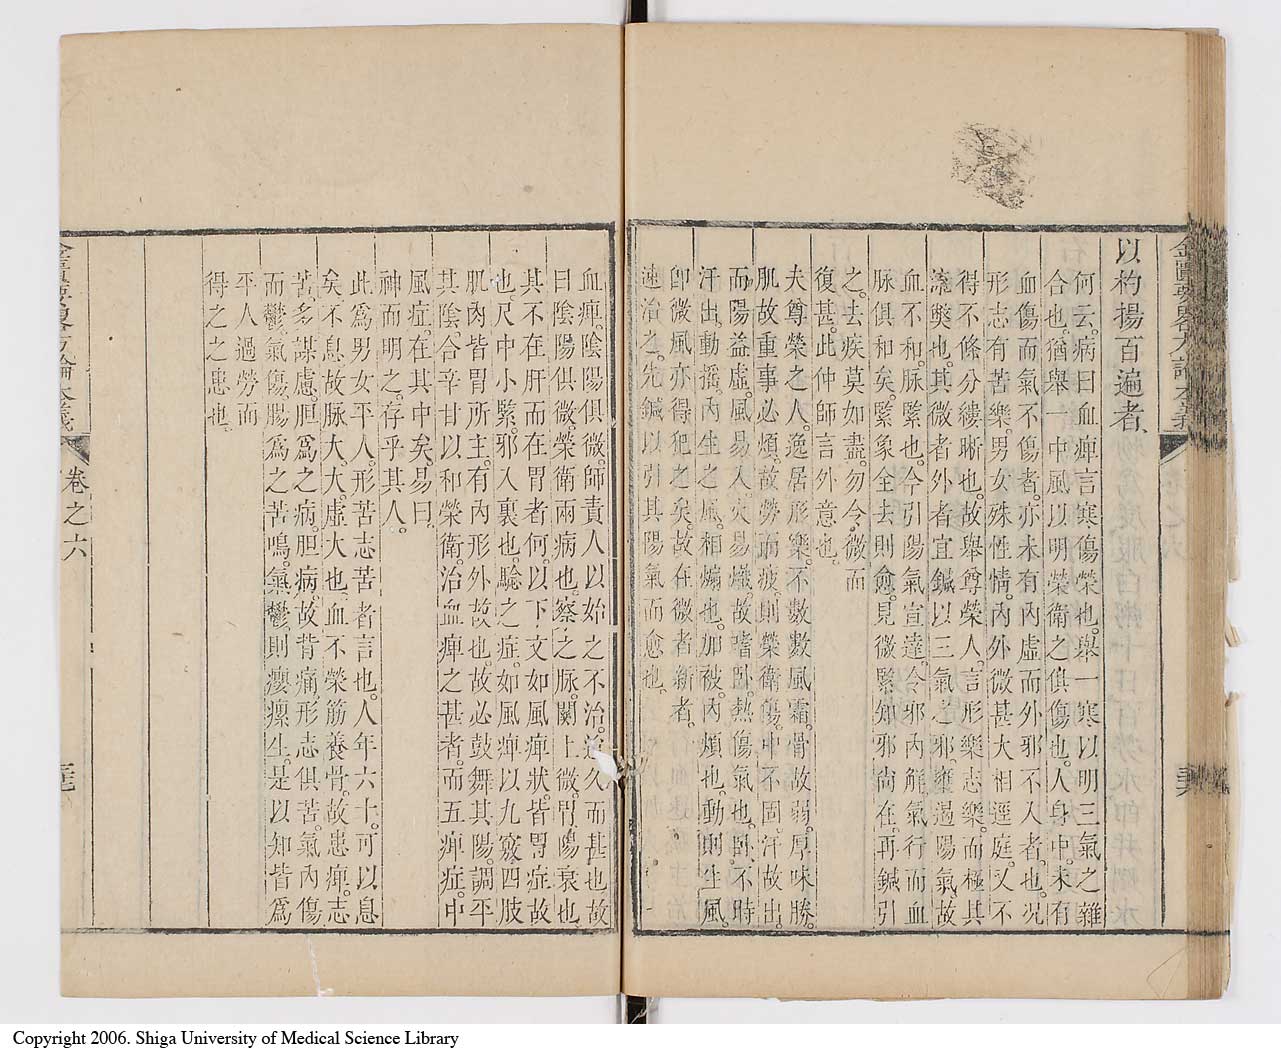 以杓揚百遍者
何云。病曰血痺言寒傷榮也。舉一寒以明三氣之雜
合也。猶舉一中風以明榮衛之俱傷也。人身中。未有
血傷而氣不傷者。亦未有內虛而外邪不入者也。况
形志有苦樂。男女殊性情。內外微甚大相逕庭。又不
得不條分縷晰也。故舉尊榮人。言形樂志樂。而極其
流弊也。其微者外者宜鍼以三氣之邪。壅遏陽氣故
血不和。脉緊也。今引陽氣宣達。令邪內解氣行而血
脉俱和矣。緊象全去則愈。見微緊知邪尚在。再鍼引
之。去疾莫如盡。勿令微而
復甚。此仲師言外意也。
夫尊榮之人。逸居形樂。不數數風霜。骨故弱。厚味勝。
肌故重事必煩。故勞而疲則榮衛傷。中不固。汗故出。
而陽益虛。風易入。火易熾。故嗜卧。熱傷氣也。卧不時
汗出。動搖。內生之風。相煽也。加被。內煩也。動則生風。
卽微風亦得犯之矣。故在微者新者。
速治之。先鍼以引其陽氣而愈也。
血痺。陰陽俱微。師責人以始之不治。迨久而甚也故
曰陰陽俱微。榮衛兩病也。察之脉。關上微。胃陽衰也
其不在肝而在胃者何。以下文如風痺狀。皆胃症故
也。尺中小緊。邪入裏也。驗之症。如風痺以九竅四肢
肌肉皆胃所主。有內形外故也。故必鼓舞其陽。調平
其陰。合辛甘以和榮衛。治血痺之甚者。而五痺症。中
風症。在其中矣。易曰。
神而明之。存乎其人。
此爲男女平人。形苦志苦者言也。人年六十。可以息
矣。不息故脉大。大虛大也。血不榮筋養骨。故患痺。志
苦。多謀慮。胆爲之病。胆病。故背痛。形志俱苦。氣內傷
而鬱氣傷。腸爲之苦鳴。氣鬱則癭瘰生。是以知皆爲
平人過勞而
得之之患也。
金匱要畧方論本義
卷之六